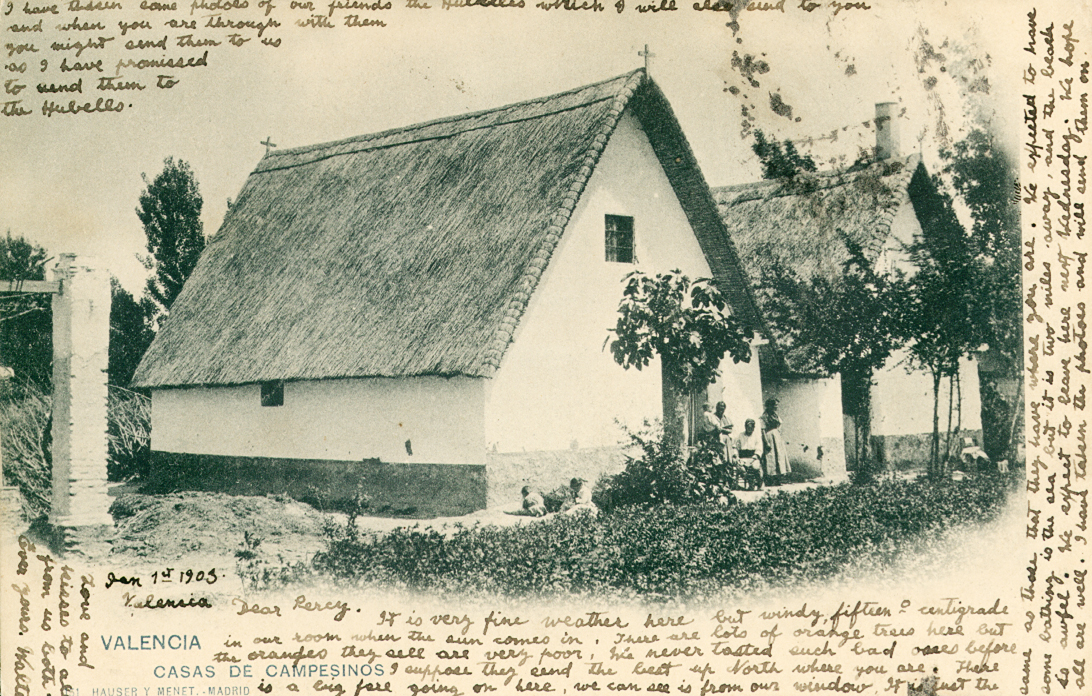 Jan 1st 1903.
Valensia
Dear Percy. It is very fine weather here but windy, fifteen º centigrade
in our room when the sun comes in. There are lots of orange trees here but
the oranges they sell are very poor, We never tasted such bad ones before
I suppose they send the best up North where you are. There
is a big fare going on here, we can see is from our window. It is just the
same as those that they have where you are. We expected to have
some bathing in the sea but it is two miles away, and the beach
is awful. We expect to leave here next Wednesday. We hope
all are well. I have taken the photos and will send them on
I have taken some photos of our friends the Hubells which I will also send to you
and when you are through with them
you might send them to us
as I have promissed
to send them to
the Hubells.
Love and
kisses to all
from us both.
Ever yours. Walter
VALENCIA
CASAS DE CAMPESINOS
HAUSER Y MENET.-MADRID